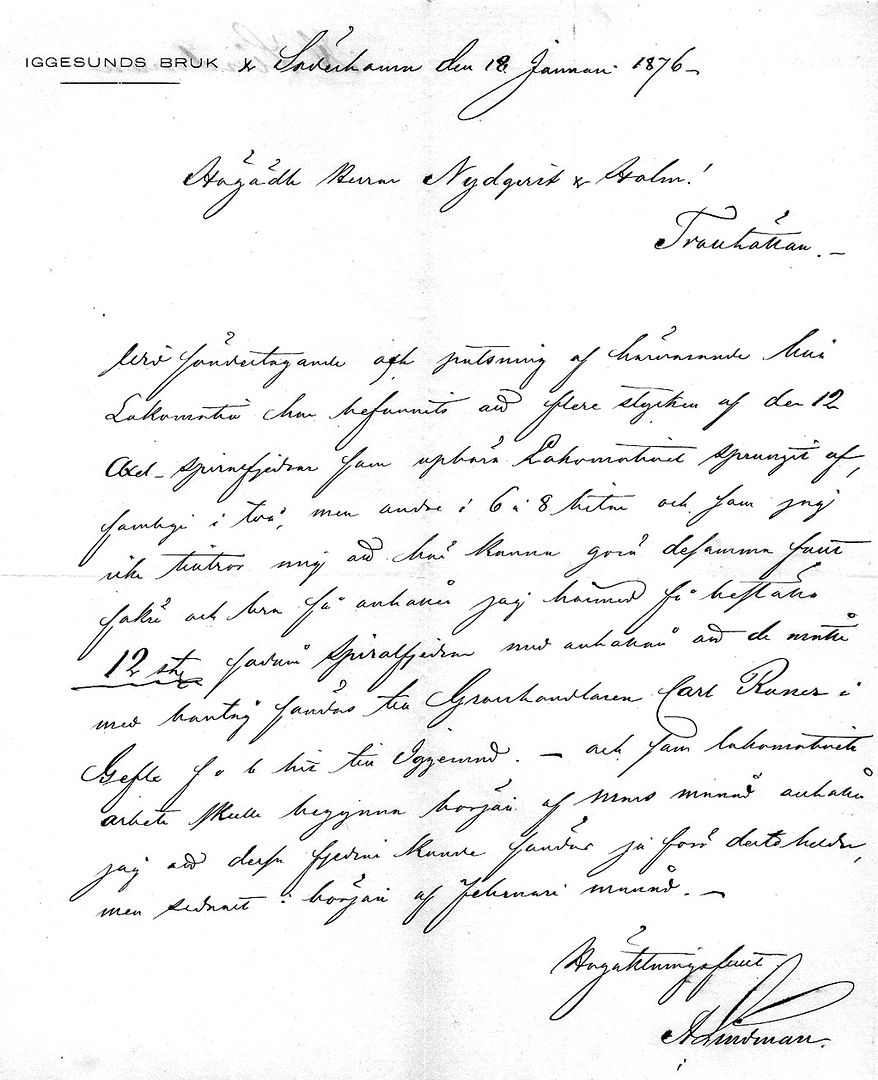 IGGESUNDS BRUK & Söderhamn den 18 Januari 1876 –
Högädle Herrar Nydqvist & Holm!
Trollhättan. –
Vid söndertagande och putsning af härvarande
Lokomotiv har befunnits att flere stycken af de 12
Axel-spiralfjedrar som uppbära Lokomotivet sprungit af,
somliga i två, men andra i 6 à 8 bitar och som jag
icke tilltror mig att här kunna göra desamma fullt
säkra och bra så anhåller jag härmed få beställa
12 st sådana Spiralfjedrar med anhållan att de måtte
med bantåg sändas till Grosshandlaren Carl Runer i
Gefle f v b hit till Iggesund. – och som lokomotivets
arbete skulle begynna början af Mars månad anhåller
jag att dessa fjedrar kunde sändas ju förr desto heldre,
men sednast i början af Februari månad. –
Högaktningsfullt
A Lindman.